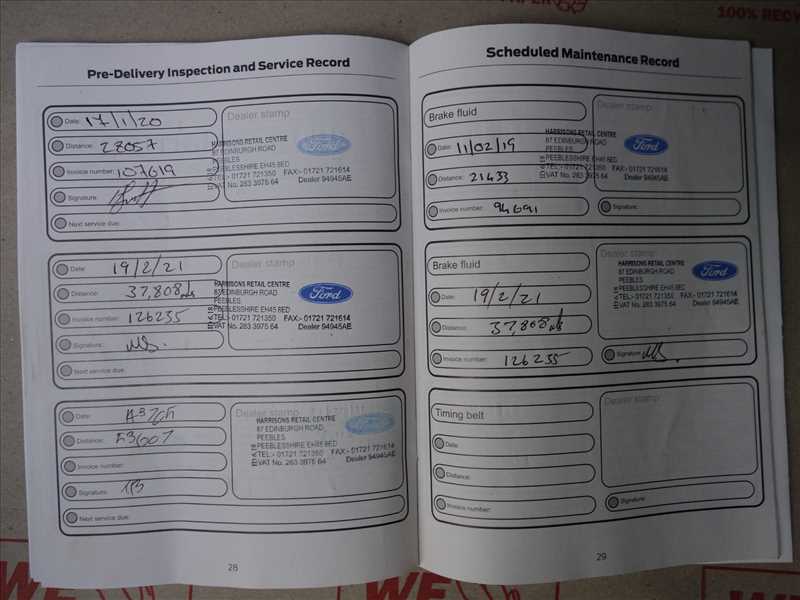 100% RECY
Pre-Delivery Inspection and Service Record
Date: 17/1/20
Distance: 28057
Invoice number: 107619
Signature:
Next service due:
Dealer stamp
HARRISONS RETAIL CENTRE
87 EDINBURGH ROAD
PEEBLES
PEEBLESSHIRE EH45 8ED
TEL:- 01721 721350 FAX:- 01721 721614
VAT No. 263 3975 64 Dealer 94945AE
Ford
Date: 19/2/21
Distance: 37,808 mls
Invoice number: 126235
Signature:
Next service due:
Dealer stamp
HARRISONS RETAIL CENTRE
87 EDINBURGH ROAD
PEEBLES
PEEBLESSHIRE EH45 8ED
TEL:- 01721 721350 FAX:- 01721 721614
VAT No. 263 3975 64 Dealer 94945AE
Ford
Date:
Distance:
Invoice number:
Signature:
Next service due:
Dealer stamp
HARRISONS RETAIL CENTRE
87 EDINBURGH ROAD
PEEBLES
PEEBLESSHIRE EH45 8ED
TEL:- 01721 721350 FAX:- 01721 721614
VAT No. 263 3975 64 Dealer 94945AE
Ford
28
Scheduled Maintenance Record
Brake fluid
Date: 11/02/19
Distance: 21433
Invoice number: 94691
Dealer stamp
HARRISONS RETAIL CENTRE
87 EDINBURGH ROAD
PEEBLES
PEEBLESSHIRE EH45 8ED
TEL:- 01721 721350 FAX:- 01721 721614
VAT No. 263 3975 64 Dealer 94945AE
Ford
Signature:
Brake fluid
Date: 19/2/21
Distance: 37,808 mls
Invoice number: 126235
Dealer stamp
HARRISONS RETAIL CENTRE
87 EDINBURGH ROAD
PEEBLES
PEEBLESSHIRE EH45 8ED
TEL:- 01721 721350 FAX:- 01721 721614
VAT No. 263 3975 64 Dealer 94945AE
Ford
Signature:
Timing belt
Date:
Distance:
Invoice number:
Dealer stamp
Signature:
29
WE
WE
WE